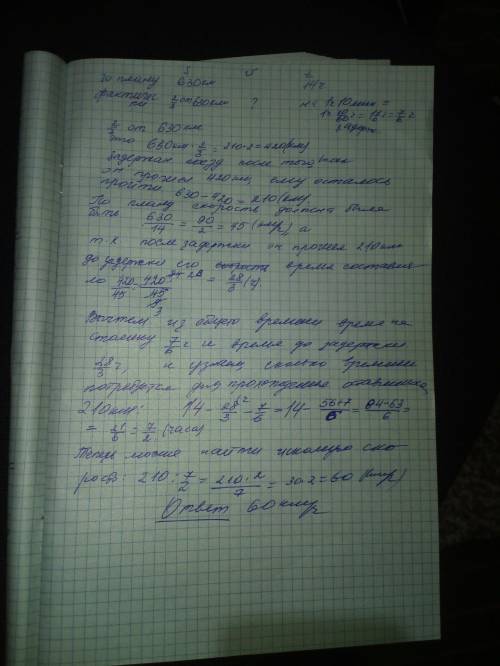 S v t
По плану 630 км 14 ч
фактиче 2/3 от 630 км ? 1ч 10мин =
ски 1 10/60 ч = 7/6 ч
задерж
2/3 от 630 км
это 630 км · 2/3 = 210·2 = 420 (км)
Задержан поезд после того, как
он прошел 420 км, ему осталось
пройти 630 - 420 = 210 (км)
По плану скорость должна была
быть 630/14 = 90/2 = 45 (км/ч), а
т.к. после задержки он прошел 210 км
до задержки его скорость время составля
ло 420/45 = 28/3 (ч)
Вычтем из общего времени время на
стоянку 7/6 ч и время до задержки
28/3 ч, и узнаем, сколько времени
потребуется для прохождения оставшихся
210 км: 14 - 28/3 - 7/6 = 14 - 56+7/6 = 84-63/6 =
= 21/6 = 7/2 (часа)
Теперь можно найти искомую ско
рость: 210 : 7/2 = 210·2/7 = 30·2 = 60 (км/ч)
Ответ 60 км/ч